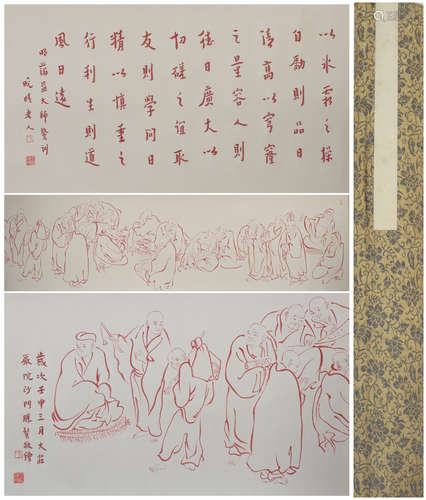 以冰霜之操
自勵則品日
清高以穹窿
之量容人則
德日廣大以
切磋之誼取
友則學問日
精以慎重之
行利生則道
風日遠
明蕅益大師警訓
晚晴老人
歲次壬申三月大莊
嚴院沙門敬繪